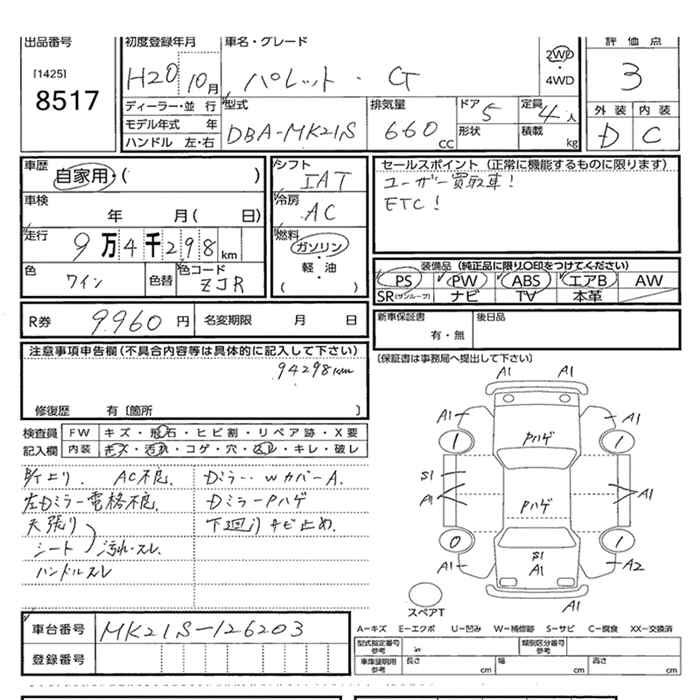 出品番号
[1425]
8517
初度登録年月
H20 10月
車名・グレード
パレット・G
2WD
・
4WD
評価点
3
外装 内装
D C
ディーラー・並行
モデル年式 年
ハンドル 左・右
型式
DBA-MK21S
排気量
660 CC
ドア 5
形状
定員 4人
積載 kg
車歴
自家用・( )
車検
年 月( 日)
走行
9万4千298km
色
ワイン
色替
色コード
ZJR
シフト
IAT
冷房
AC
燃料
ガソリン
・
軽・油
・
( )
セールスポイント (正常に機能するものに限ります)
ユーザー買取車!
ETC!
装備品 (純正品に限り○印をつけてください)
PS PW ABS エアB AW
SR(サンルーフ) ナビ TV 本革
R券 9960円
名変期限 月 日
新車保証書
有・無
後日品
(保証書は事務局へ提出して下さい)
注意事項申告欄(不具合内容等は具体的に記入して下さい)
94298km
修復歴 有〔箇所 〕
検査員
記入欄
FW キズ・飛石・ヒビ割・リペア跡・X要
内装 キズ・汚れ・コゲ・穴・スレ・キレ・破レ
AC不良.
左Dミラー電格不良.
天張り
シート
汚れ・スレ
ハンドルスレ
Dミラー WカバーA.
DミラーPハゲ
下廻りサビ止め.
A1 A1
A1 A1
1 1
Pハゲ
S1
A1 A1
Pハゲ
0 1
S1
A1
A1 A2
A1
スペアT
車台番号
MK21S-126203
登録番号
A-キズ E-エクボ U-凹み W-補修跡 S-サビ C-腐食 XX-交換済
型式指定番号
参考
類別区分番号
参考
車庫証明用
参考
長さ cm
幅 cm
高さ cm